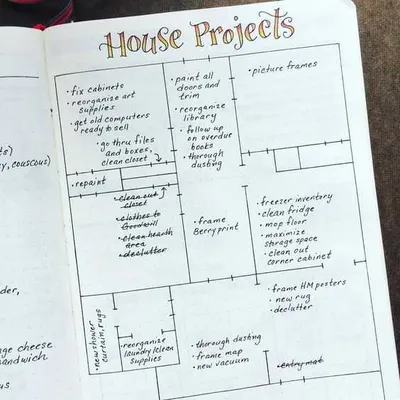 House Projects
• fix cabinets
• reorganize art
supplies
• get old computers
ready to sell
• go thru files
and boxes,
clean closet
• repaint
• clean out
closet
• clothes to
Goodwill
• clean hearth
area
• declutter
• paint all
doors and
trim
• reorganize
library
• follow up
on overdue
books
• thorough
dusting
• picture frames
• frame
Berry print
• freezer inventory
• clean fridge
• mop floor
• maximize
storage space
• clean out
corner cabinet
• frame HM posters
• new rug
• declutter
• new shower
curtain, rugs
• reorganize
laundry/clean
supplies
• thorough dusting
• frame map
• new vacuum
• entry mat
y, couscous)
der,
cheese
andwich
us